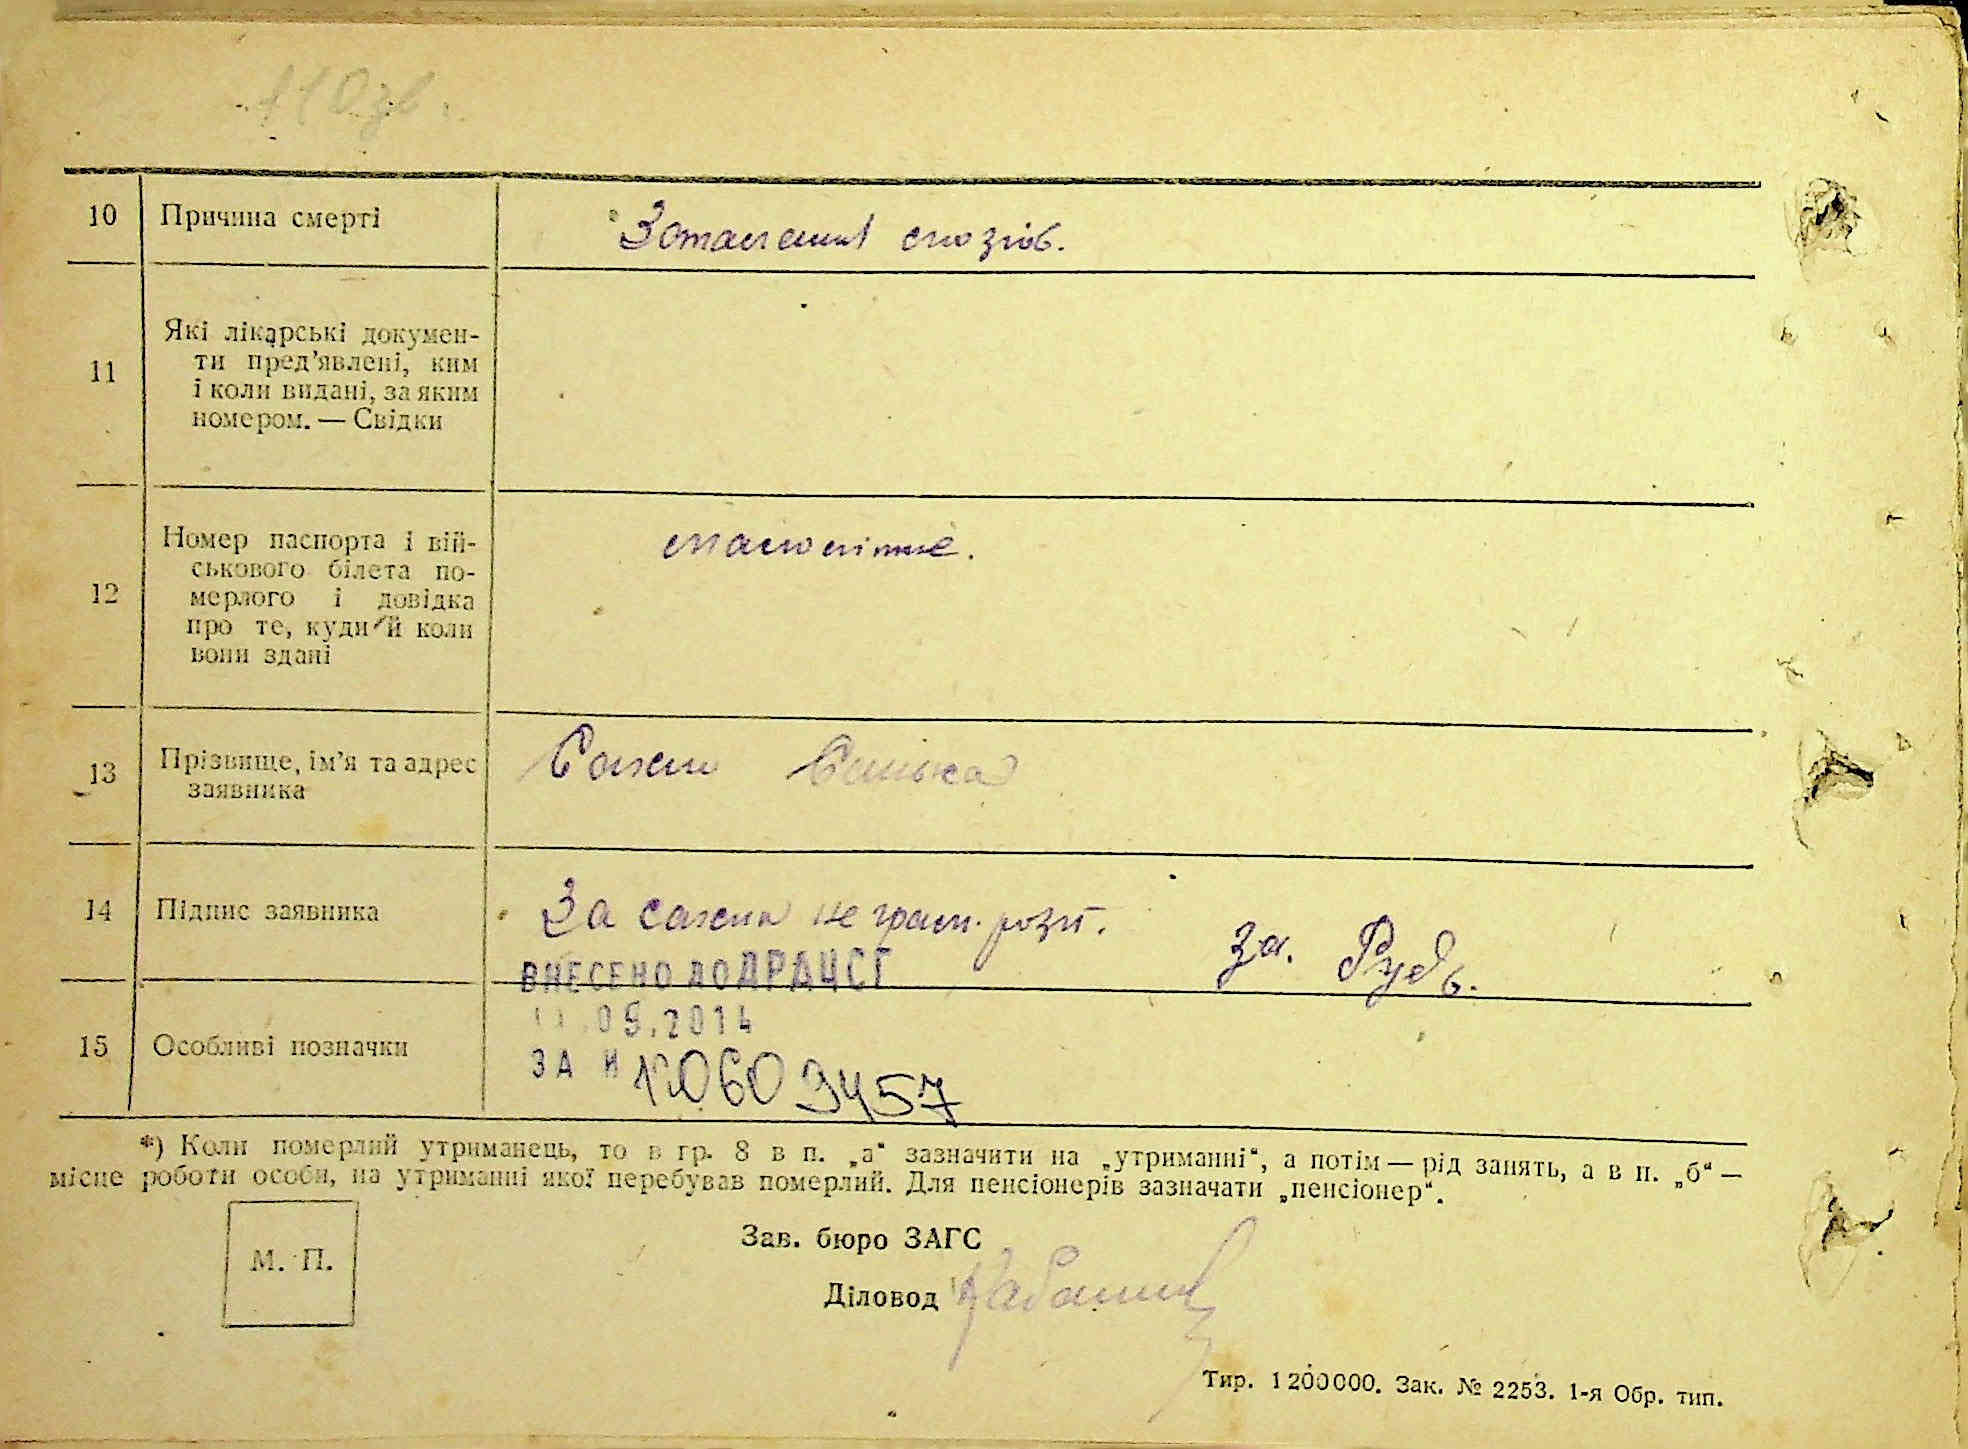 110зв
10 Причина смерті
Запалення
11 Які лікарські докумен-
ти пред’явлені, ким
і коли видані, за яким
номером. — Свідки
12 Номер паспорта і вій-
ськового білета по-
мерлого і довідка
про те, куди й коли
вони здані
малолітнє.
13 Прізвище, ім’я та адрес
заявника
Сажин
14 Підпис заявника
За сажин не грам. розп.
за. Рудь.
ВНЕСЕНО ДО ДРАЦСГ
.09.2014
15 Особливі позначки
ЗА №
*) Коли померлий утриманець, то в гр. 8 в п. „а“ зазначити на „утриманні“, а потім — рід занять, а в п. „б“ —
місце роботи особи, на утриманні якої перебував померлий. Для пенсіонерів зазначати „пенсіонер“.
М. П.
Зав. бюро ЗАГС
Діловод
Тир. 1200000. Зак. № 2253. 1-я Обр. тип.